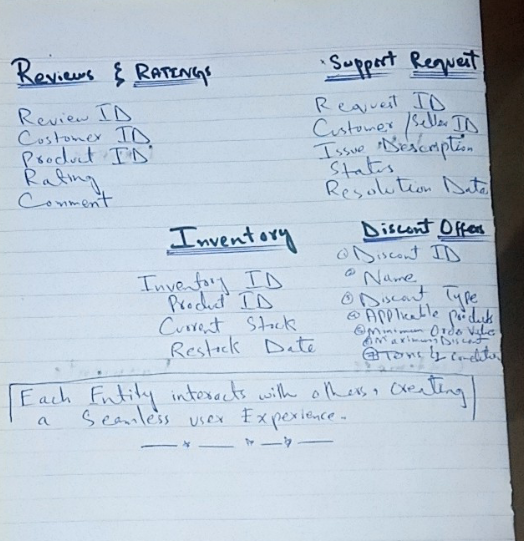 Reviews & RATINGS
Review ID
Costomer ID
Product ID
Rating
Comment
Support Request
Request ID
Customer /Seller ID
Issue Description
Status
Resolution Date
Inventory
Inventory ID
Product ID
Current Stock
Restock Date
Discont Offers
Discont ID
Name
Discont Type
Applicable products
Minimum Order Value
Maximum Discont
Terms & Condition
Each Entity interacts with others, creating
a Seamless user Experience.